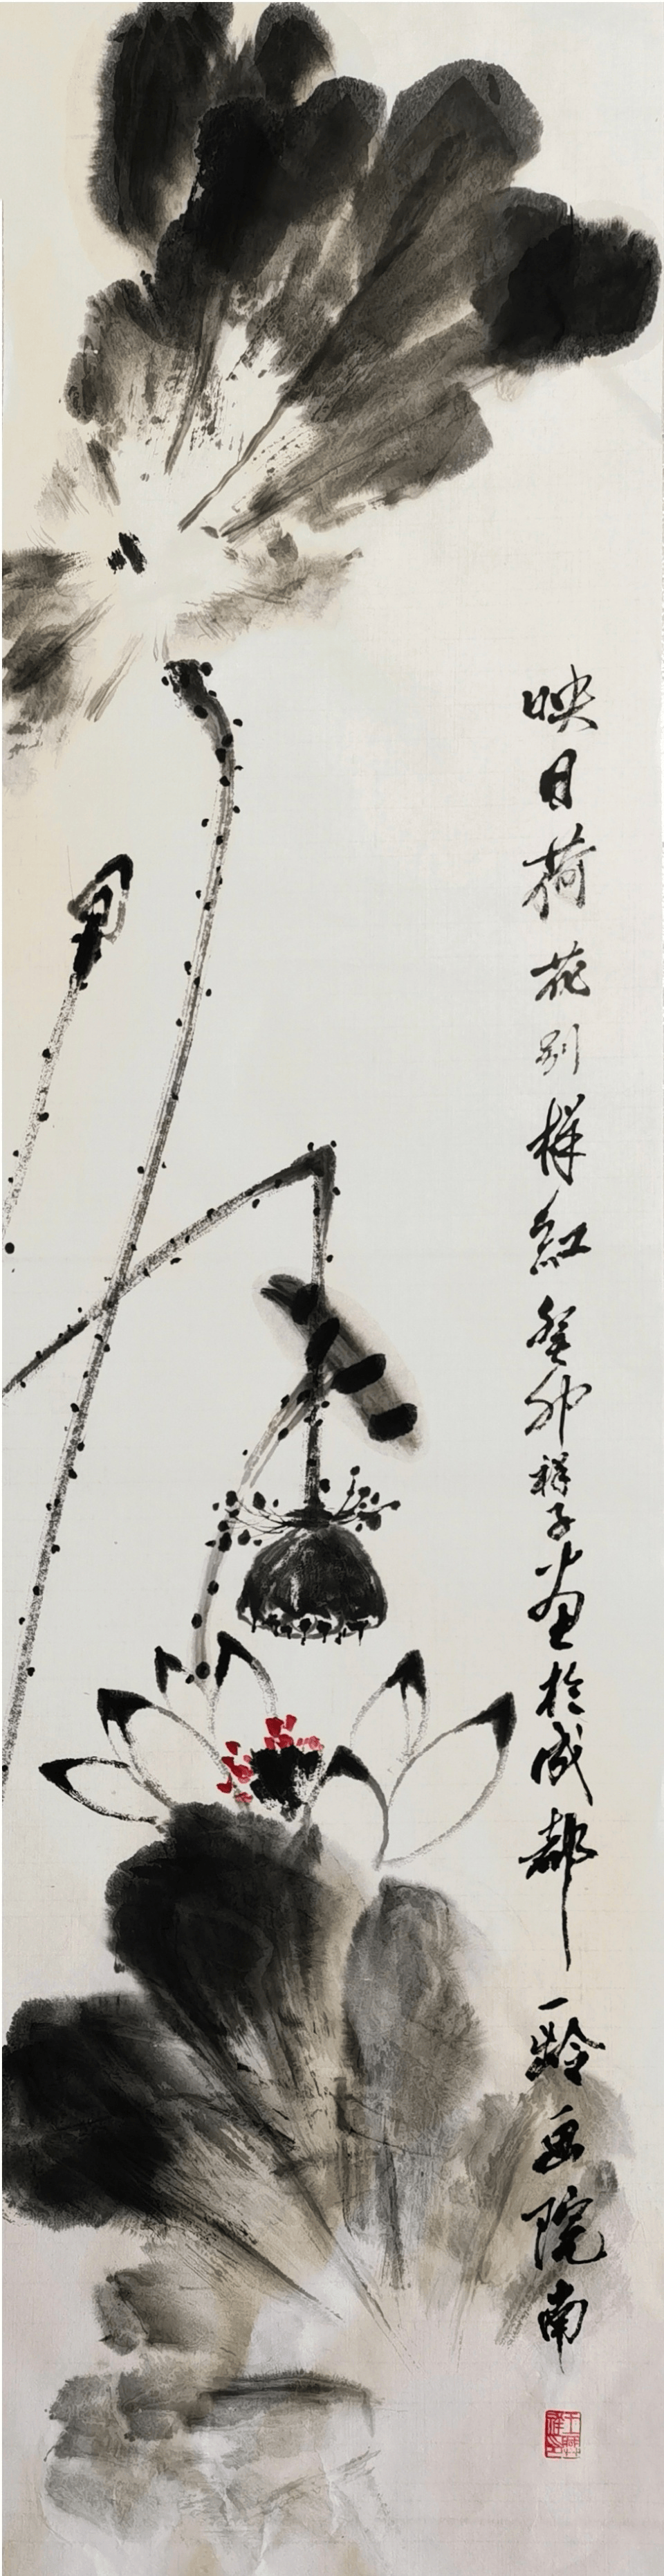 映日荷花别样红癸卯祥子画於成都一龄画院南